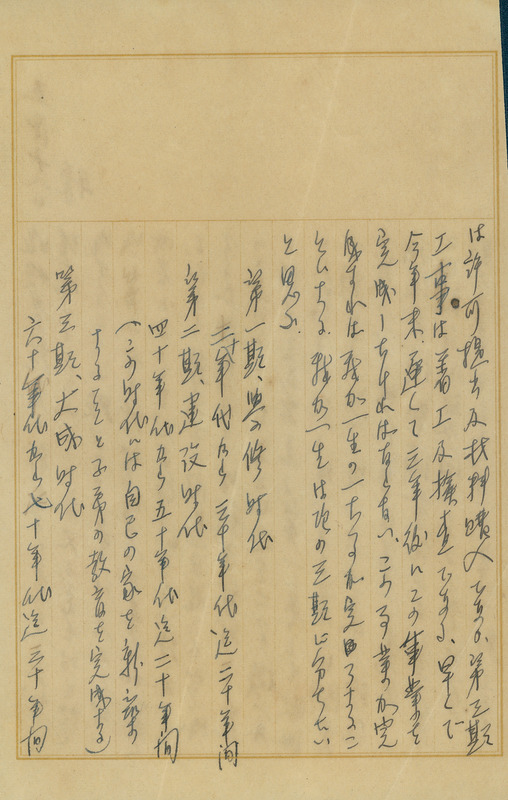 は許可提出及材料購入である、第三期
工事は着工及検査である、早くて
今年末、遅くて三年後にこの事業を
完成しなければならない、この事業が完
成すれば我が一生の一つるが完了するこ
とになる、我が一生は次の三期に分ちたい
と思ふ、
第一期、学修時代
二十年代から三十年代迄二十年間
第二期、建設時代
四十年代から五十年代迄二十年間
(この時代には自己の家を新築
することと子弟の教育を完成する)
第三期、大成時代
六十年代から七十年代迄二十年間